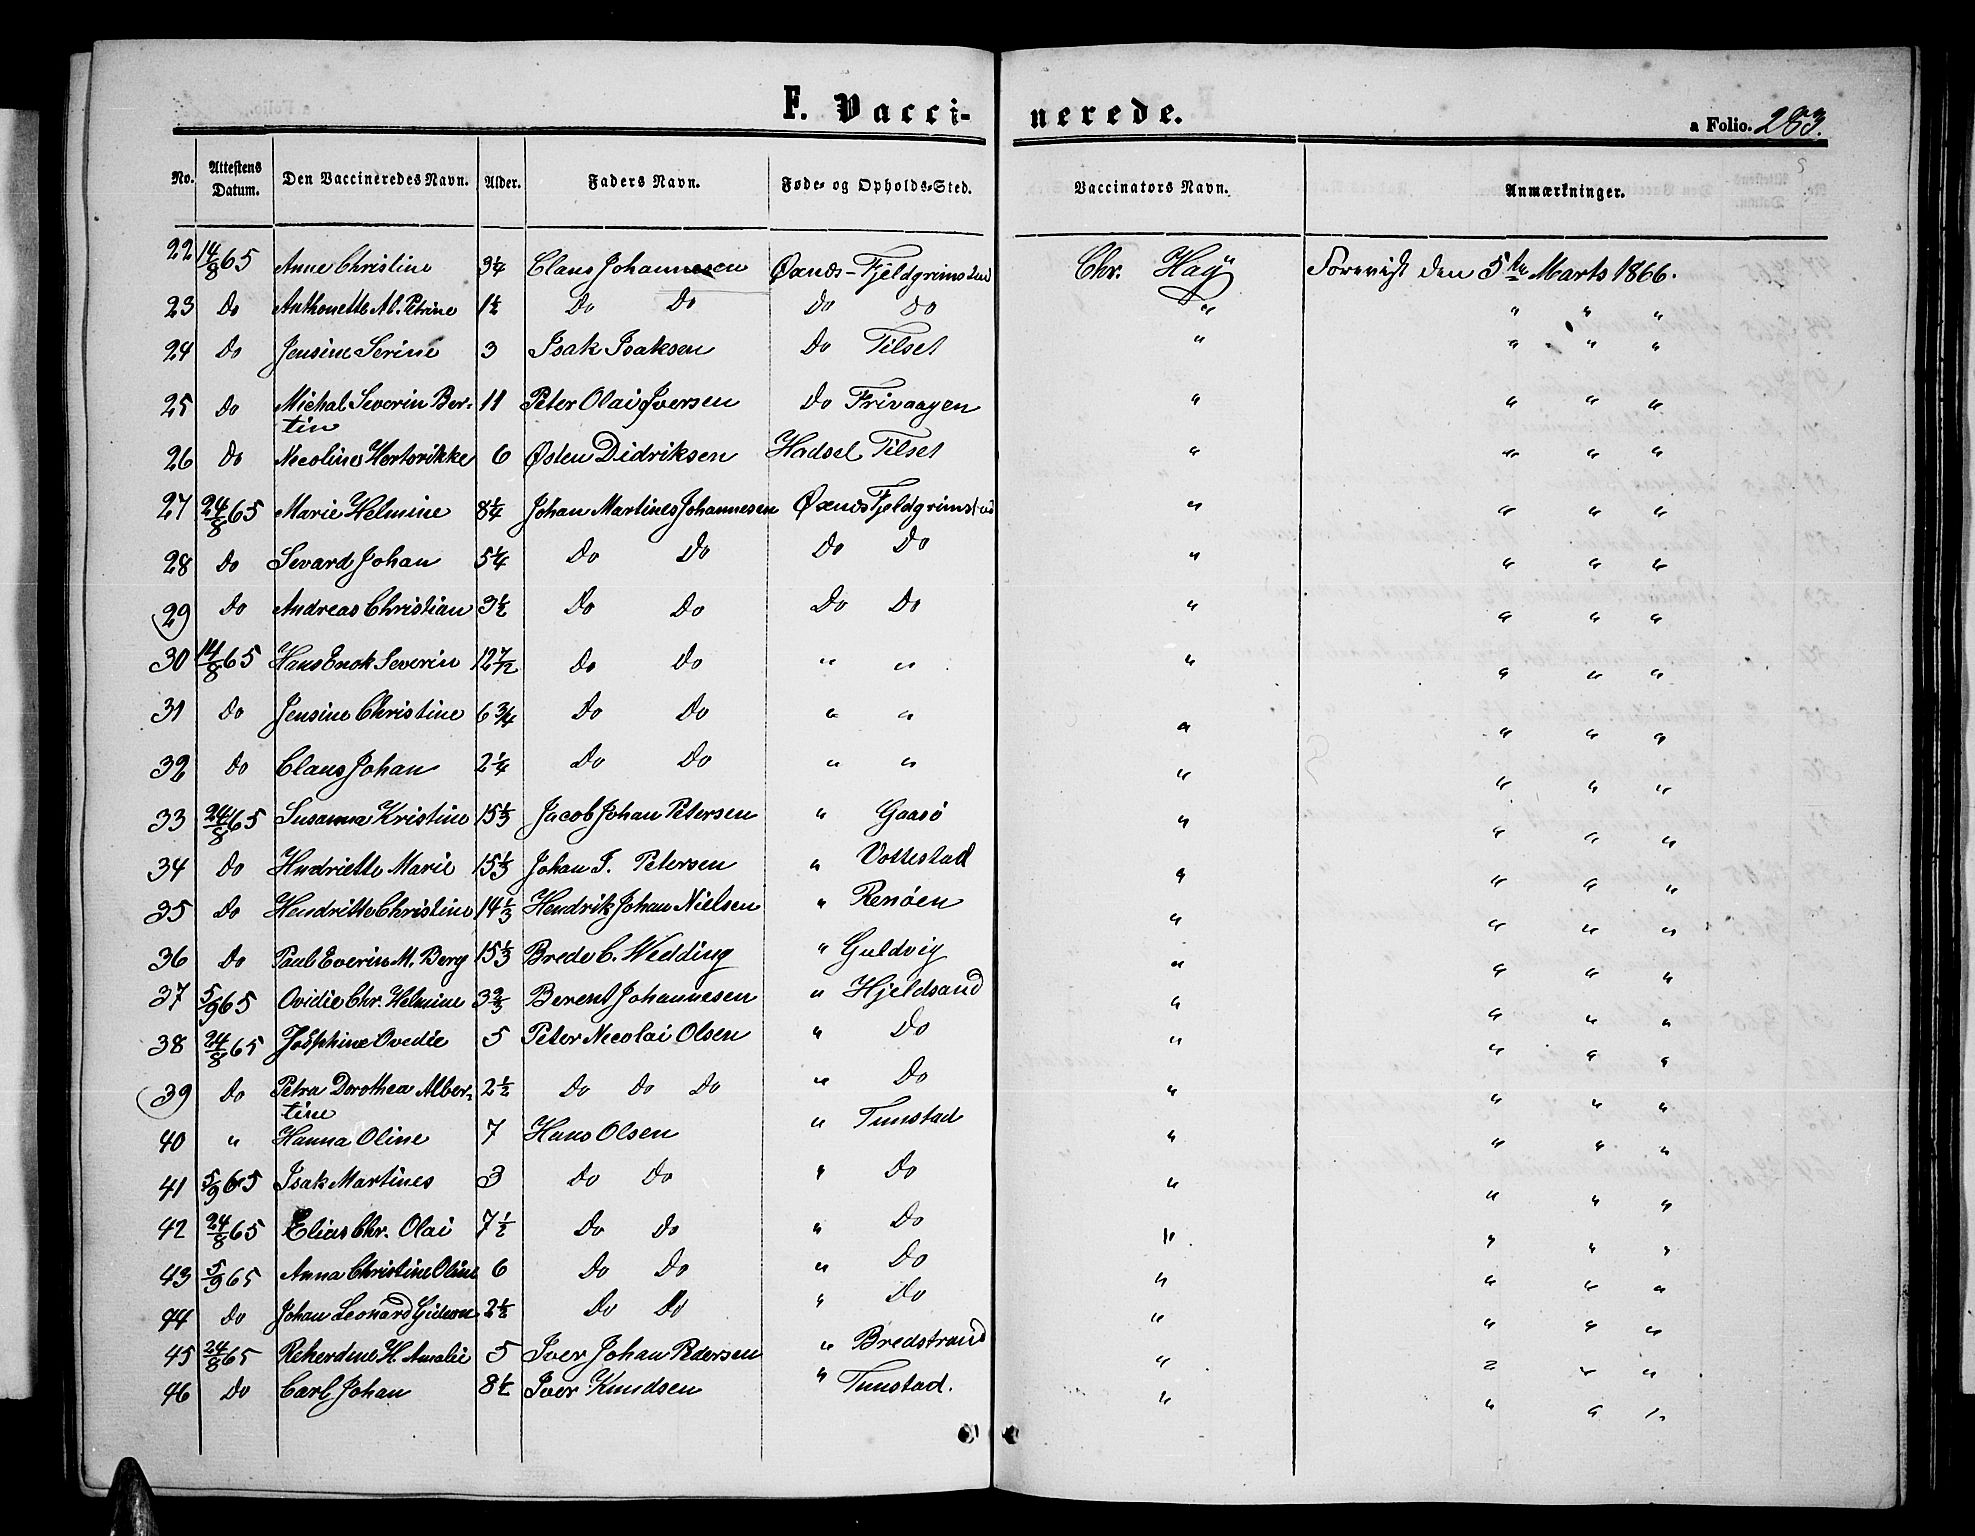 F. Vacci- nerede.
a Folio. 283.
No. Attestens Datum. Den Vaccineredes Navn. Alder. Faders Navn. Føde- og Opholds-Sted. Vaccinators Navn. Anmærkninger.
22 14/8 65 Anne Christine 3 1/4 Claus Johannesen Øxnds- Fjeldgrimstad Chr. Hay Forevist den 5te Marts 1866.
23 Do Anthonette Al. Petrine 1 1/2 Do Do Do Do " " " "
24 Do Jensine Serine 3 Isak Isaksen Do Tilset " " " "
25 Do Michal Severin Ber- 11 Peter Olai Iversen Do Frivaagen " " " "
tin
26 Do Nicoline Hertvikke 6 Østen Didriksen Hadsel Tilset " " " "
27 24/8 65 Marie Helmine 8 1/4 Johan Martines Johannesen Øxnds Fjeldgrimstad " " " "
28 Do Sevard Johan 5 1/4 Do Do Do Do " " " "
29 Do Andreas Christian 3 1/2 Do Do Do Do " " " "
30 14/8 65 Hans Enok Severin 12 7/12 Do Do " " " " " "
31 Do Jensine Christine 6 3/4 Do Do " " " " " "
32 Do Claus Johan 2 1/4 Do Do " " " " " "
33 24/8 65 Susanna Kristine 15 1/3 Jacob Johan Petersen " Gaasø " " " "
34 Do Hndriette Marie 15 1/3 Johan J. Petersen " Vottestad " " " "
35 Do Hendritte Christine 14 1/3 Hendrik Johan Nielsen " Renøen " " " "
36 Do Paul Everin M. Berg 15 1/3 Brede C. Wedding " Guldvig " " " "
37 5/9 65 Ovidie Chr. Helmine 3 2/3 Berent Johannesen " Hjeldsand " " " "
38 24/8 65 Josphine Ovedie 5 Peter Necolai Olsen " Do " " " "
39 Do Petra Dorothea Alber- 2 1/2 Do Do Do " Do " " " "
tine
40 " Hanna Oline 7 Hans Olsen " Tunstad " " " "
41 5/9 65 Isak Martines 3 Do Do " Do " " " "
42 24/8 65 Elias Chr. Olai 7 1/2 Do Do " Do " " " "
43 5/9 65 Anna Christine Oline 6 Do Do " Do " " " "
44 Do Johan Leonard Gideon 2 1/2 Do Do " Do " " " "
45 24/8 65 Rikerdine H. Amalie 5 Iver Johan Pedersen " Bredstrand " " " "
46 Do Carl Johan 8 1/2 Iver Knudsen " Tunstad. " " " "